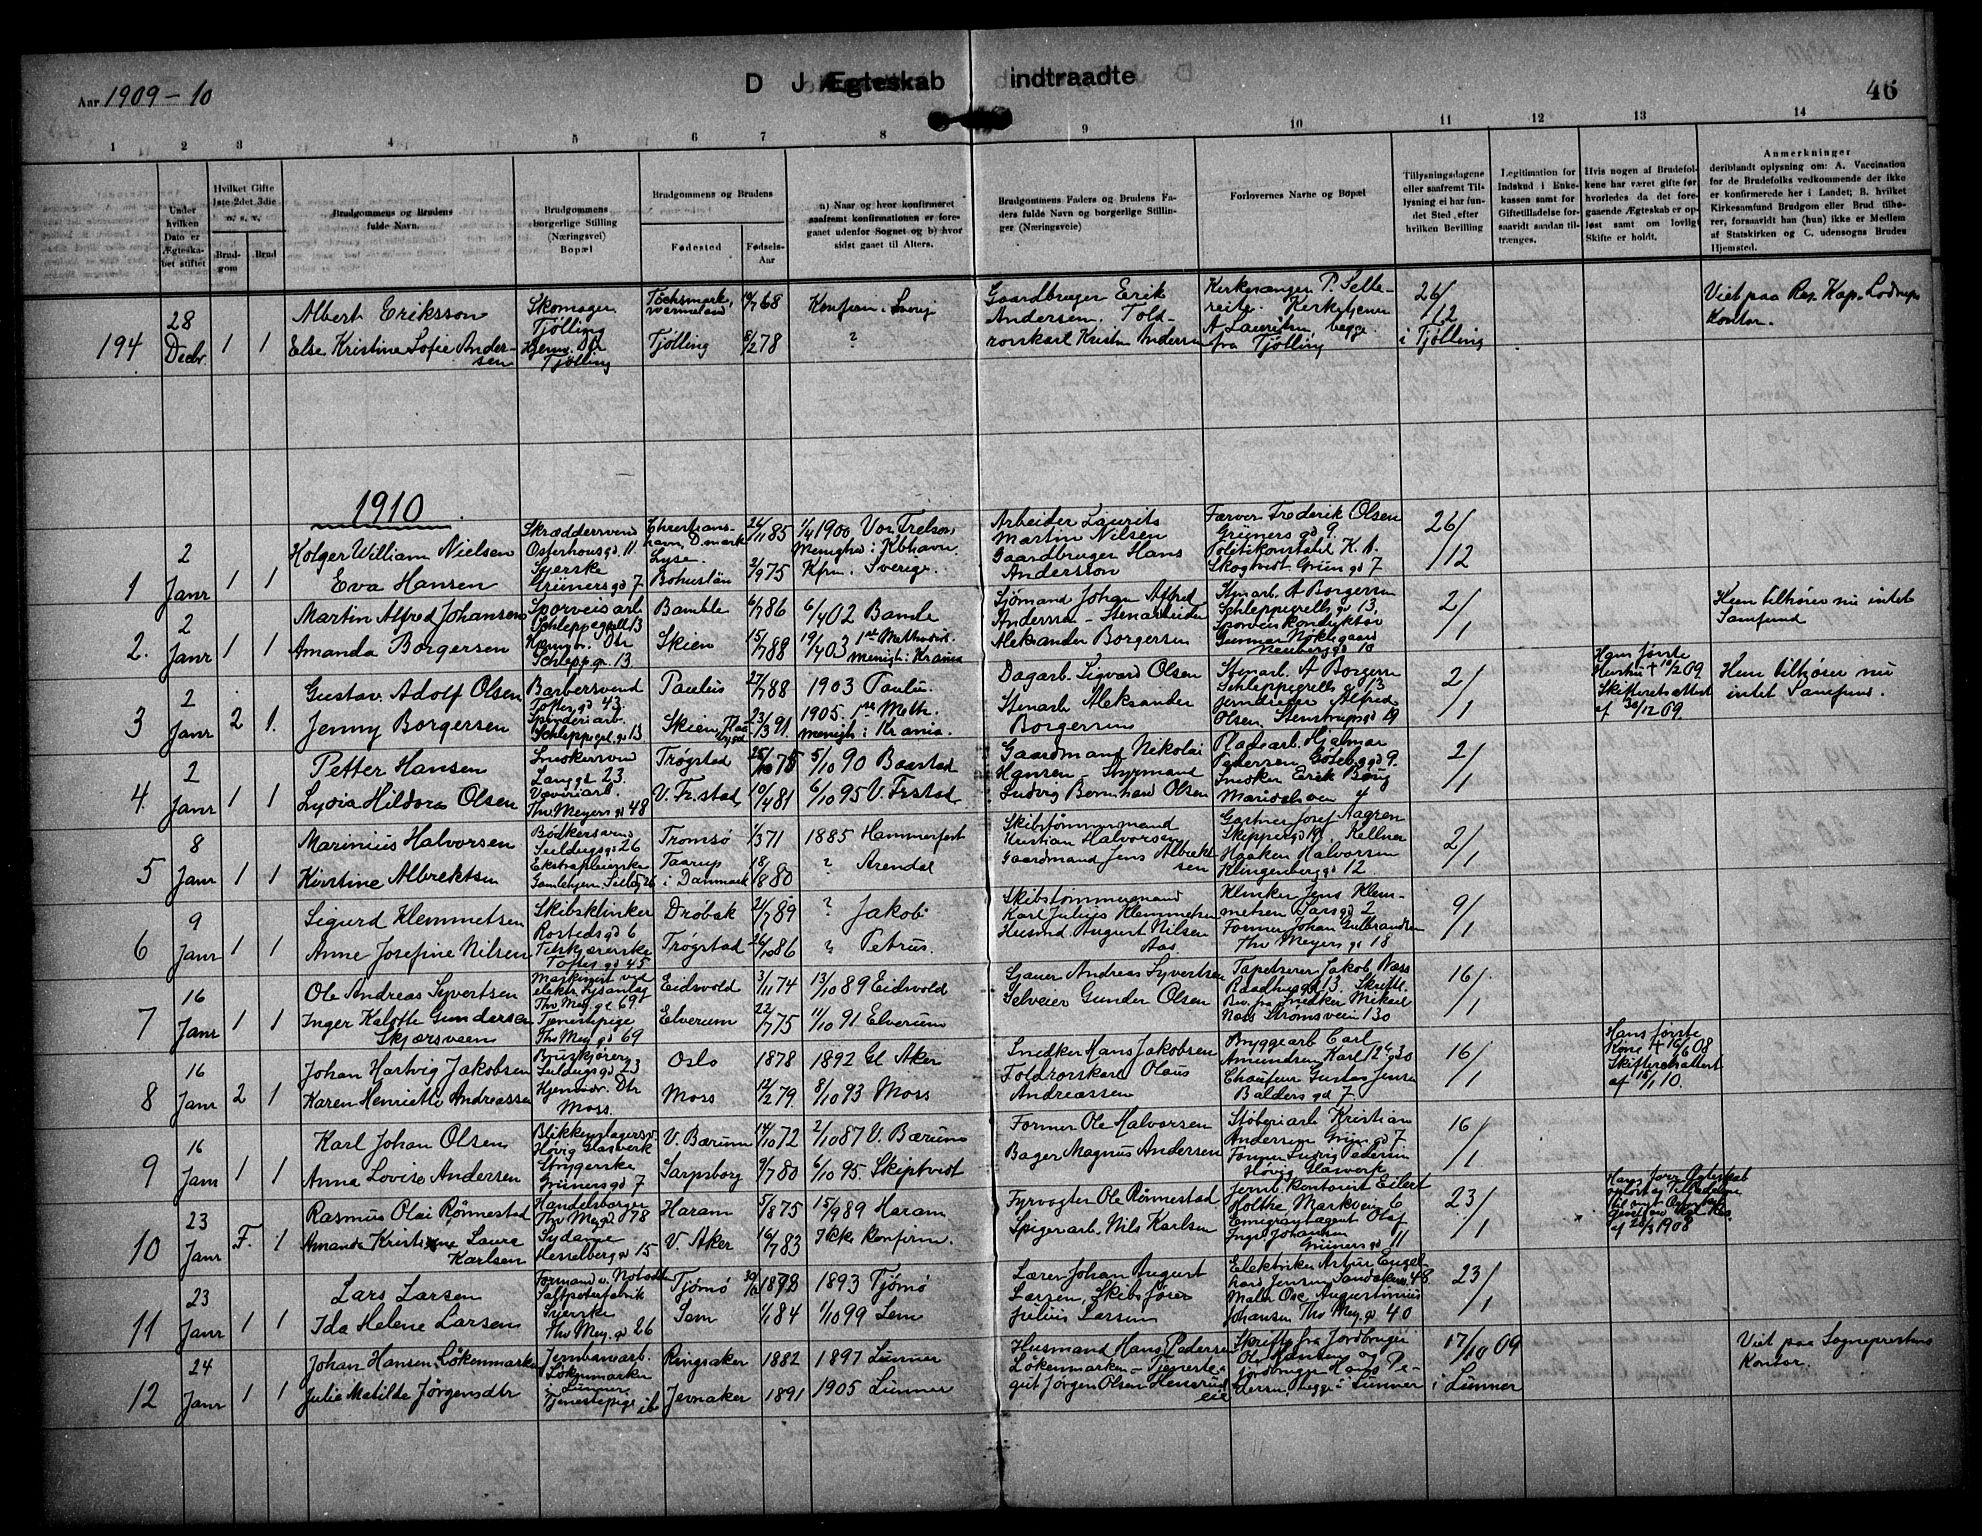 Aar 1909-10
D J Ægteskab indtraadte
46
1 2 3 4 5 6 7 8 9 10 11 12 13 14
Under hvilken Dato er Ægteskabet stiftet
Hvilket Gifte 1ste 2det 3die o. s. v.
Brudgom
Brud
Brudgommens og Brudens fulde Navn.
Brudgommens borgerlige Stilling (Næringsvei) Bopæl
Brudgommens og Brudens
Fødested
Fødsels-Aar
a) Naar og hvor konfirmeret saafremt konfirmationen er foregaaet udenfor Sognet og b) hvor sidst gaaet til Alters.
Brudgommens Faders og Brudens Faders fulde Navn og borgerlige Stillinger (Næringsveie)
Forlovernes Navne og Bopæl
Tillysningsdagene eller saafremt Tillysning ei har fundet Sted, efter hvilken Bevilling
Legitimation for Indskud i Enkekassen samt for Giftetilladelse forsaavidt saadan tiltrænges.
Hvis nogen af Brudefolkene har været gifte før hvorledes da det foregaaende Ægteskab er opløst samt om lovligt Skifte er holdt.
Anmerkninger
deriblandt oplysning om: A. Vaccination for de Brudefolks vedkommende der ikke er konfirmerede her i Landet; B. hvilket Kirkesamfund Brudgom eller Brud tilhører, forsaavidt han (hun) ikke er Medlem af Statskirken og C. udensogns Brudes Hjemsted.
194
28 Decbr 1 1
Albert Eriksson
Else Kristine Sofie Andersen
Skomager Tjølling
Hjemv. Dtr Tjølling
Tjølling 5/2 78 ?
Gaardbruger Erik Andersen. Toldroskarl
Kirkesanger P.
Kirketjener A Lauritsen, begge fra Tjølling
26/12 i Tjølling
Viet paa Res. Kap. Kontor.
1910
1
2 Janr 1 1
Holger William Nielsen
Eva Hansen
Skræddersvend Osterhausgd 11
Syerske Grünersgd 7
Christianshavn, D.mark
Lyse Bohuslän
24/11 85
2/9 75
1/4 1900 Vor Frelser Menighed i Kbhavn.
Kfm. Sverige.
Arbeider Laurits Martin Nilsen
Gaardbruger Hans Andersson
Farver Frederik Olsen Grünersgd 9.
Politikonstabel K. A. Skogtvedt Grün gd 7
26/12
2.
2 Janr 1 1
Martin Alfred Johansen
Amanda Borgersen
Sporveisarb Schleppegrell 13
Hjemv. Dtr Schleppgr. 13
Bamble 6/7 86 6/4 02 Bamle
Skien 15/7 88 19/4 03 1ste Methodist. menigh. i Krania
Sjømand Johan Alfred Andersen - Stenarbeider Aleksander Borgersen
Stenarb. A Borgersen Schleppegrells gd 13.
Sporveiskonduktør Gunnar Nøklegaard Neuberg gd 10
2/1
Hun tilhører nu intet Samfund
3
2 Janr 2 1.
Gustav Adolf Olsen
Jenny Borgersen
Barbersvend Toftes gd 43.
Spinderiarb. Schleppegrl. gd 13
Paulus 27/7 88 1903 Paulus.
Skien 23/3 91 1905. 1ste Meth. menigh. i Krania.
Dagarb. Sigvard Olsen
Stenarb Aleksander Borgersen
Stenarb. A Borgersen Schleppegrells gd 13
Jerndreier Alfred Olsen Stenstrupsgd 19
2/1
Hans første Hustru + 10/2 09. Skifteretsattest af 30/12 09.
Hun tilhører nu intet Samfund.
4.
2 Janr 1 1
Petter Hansen
Lydia Hildora Olsen
Snedkersvend Langgd 23.
Væveriarb. Thv Meyers gd 48
Trøgstad 25/10 75 5/10 90 Baastad
V. Fr.stad 10/4 81 6/10 95 V. Frstad
Gaardmand Nikolai Hansen - Styrmand Ludvig Bernhard Olsen
Pladsarb. Hjalmar Pedersen Gøteborg gd 9.
Snedker Erik Berg Maridalsvei 4
2/1
5
8 Janr 1 1
Marinius Halvorsen
Kirstine Albrektsen
Bødkersvend Seildugsgd 26
Tromsø 1/3 71 1885 Hammerfest
Taarup i Danmark 18/1 80 ? Arendal
Skibstømmermand Kristian Halvorsen
Gaardmand Jens Albrektsen
Gartner Josef Aagren Skippergd 19. Kellner Haaken Halvorsen Klingenberg gd 12
2/1
6
9 Janr 1 1
Sigurd Klemmetsen
Anne Josefine Nilsen
Skibsklinker Rosteds gd 6
Toftes gd 45
Drøbak 21/7 89 ? Jakob
Trøgstad 26/10 86 ? Petrus.
Skibstømmermand Karl Julius Klemmetsen
Husmd. August Nilsen Aas
Klinker Jens Klemmetsen Sarsgd 2
Former Johan Gulbrandsen Thv Meyers gd 18
9/1
7
16 Janr 1 1
Ole Andreas Syvertsen
Inger Kalotte Gundersen Skjærsveen
Maskinist ved elektr. Lysanlæg Thv Mey. gd 69
Tjenestepige Thv Mey gd 69
Eidsvold 3/11 74 13/10 89 Eidsvold
Elverum 22/7 75 11/10 91 Elverum
Gjauer Andreas Syvertsen
Selveier Gunder Olsen
Tapetserer Jakob Næss Raadhusgd 13. Skriftl. Bev. fra Snedker Mikael Næss Strømsveien 130
16/1
8
16 Janr 2 1
Johan Hartvig Jakobsen
Karen Henriette Andreassen
Bruskjører Seildugsgd 23
Hjemmev. Dtr Moss.
Oslo 1878 1892 Gl Aker
Moss 12/2 79. 8/10 93 Moss
Snedker Hans Jakobsen
Toldroskarl Olaus Andreassen
Bryggearb Carl Amundsen Karl 12 gd 30
Chaufeur Gustav Jensen Balders gd 7
16/1
Hans første Kone + 16/6 08 Skifteretsattest af 15/1 10.
9
16 Janr 1 1
Karl Johan Olsen
Anna Lovise Andersen
Blikkenslagersv. Høvig Glasverk
Strygerske Grüners gd 7
V. Bærum 14/10 72 2/10 87 V. Bærum
Sarpsborg 9/7 80 6/10 95. Skiptvedt
Former Ole Halvorsen
Bager Magnus Andersen
Støberiarb Kristian Andersen Grün gd 7
Former Ludvig Pedersen Høvig Glasverk
16/1
10
23 Janr F. 1
Rasmus Olai Rønnestad
Amanda Kristine Laura Karlsen
Handelsborger Thv Mey gd 78
Sydame Hesselberg gd 15
Haram 5/8 75 15/9 89 Haram
V. Aker 16/7 83 Ikke konfirm.
Fyrvogter Ole Rønnestad
Spigerarb. Nils Karlsen
Jernb. kontorist Eilert Holthe Markvei 6
Emigrantagent Olaf Ingv. Johansen Grüners gd 11
23/1
Hans forr. Ægteskab opløst
af 28/3 1908
11
23 Janr 1 1
Lars Larsen
Ida Helene Larsen
Formand v. Notodden Saltpeterfabrik
Syerske Thv Mey. gd 26
Tjømø 1873 1893 Tjømø
Sem 1/1 84 1/10 99 Sem
Lærer Johan August Larsen, Skibsfører Julius Larsen
Elektriker Artur Engelhard Jensen Sandakerv. 48
Maler Ose Augustinius Johansen Thv Mey. gd 40
23/1
12
24 Janr 1 1
Johan Hansen Løkenmarken
Julie Matilde Jørgensdtr
Jernbanearb. Løkenmarken Lunner
Tjenestepige ib
Ringsaker 1882 1897 Lunner
Jevnaker 1891 1905 Lunner
Husmand Hans Pedersen Løkenmarken - Tjenestegut Jørgen Olsen Hensrud eie
Skriftl. fra Jordbruger Ole Hansen og Jordbruger Hans Pedersen, begge i Lunner
17/10 09 i Lunner
Viet paa Sogneprestens Kontor.